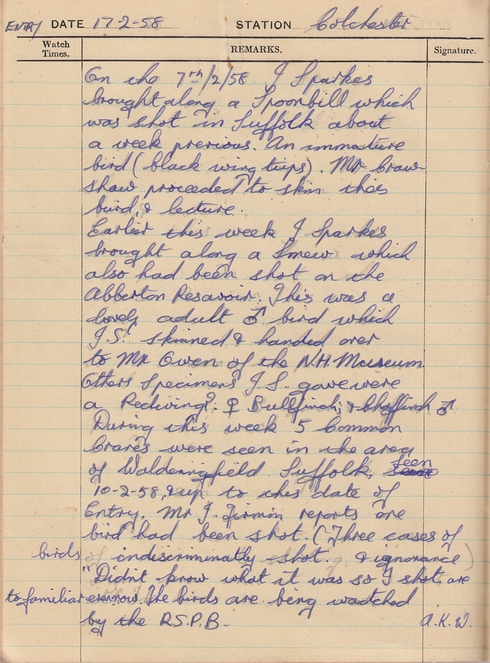 ENTRY DATE 17-2-58 STATION Colchester
Watch Times. REMARKS. Signature.
On the 7th/2/58 J Sparkes
brought along a Spoonbill which
was shot in Suffolk about
a week previous. An immature
bird (black wing tips). Mr Craw-
shaw proceeded to skin this
bird, & lecture.
Earlier this week J Sparkes
brought along a Smew which
also had been shot on the
Abberton Resavoir. This was a
lovely adult ♂ bird which
J.S. skinned & handed over
to Mr Owen of the N.H. Museum.
Others Specimens J.S. gave were
a Redwing?. ♀ Bullfinch, & Chaffinch ♂
During this week 5 Common
Cranes were seen in the area
of Waldringfield Suffolk, seen
10-2-58, & up to this date of
Entry. Mr J. Firmin reports one
bird had been shot. (Three cases of
birds indiscriminatly shot & ignorance)
"Didn't know what it was so I shot, are
to familiar even now. The birds are being watched
by the R.S.P.B. A.K.W.